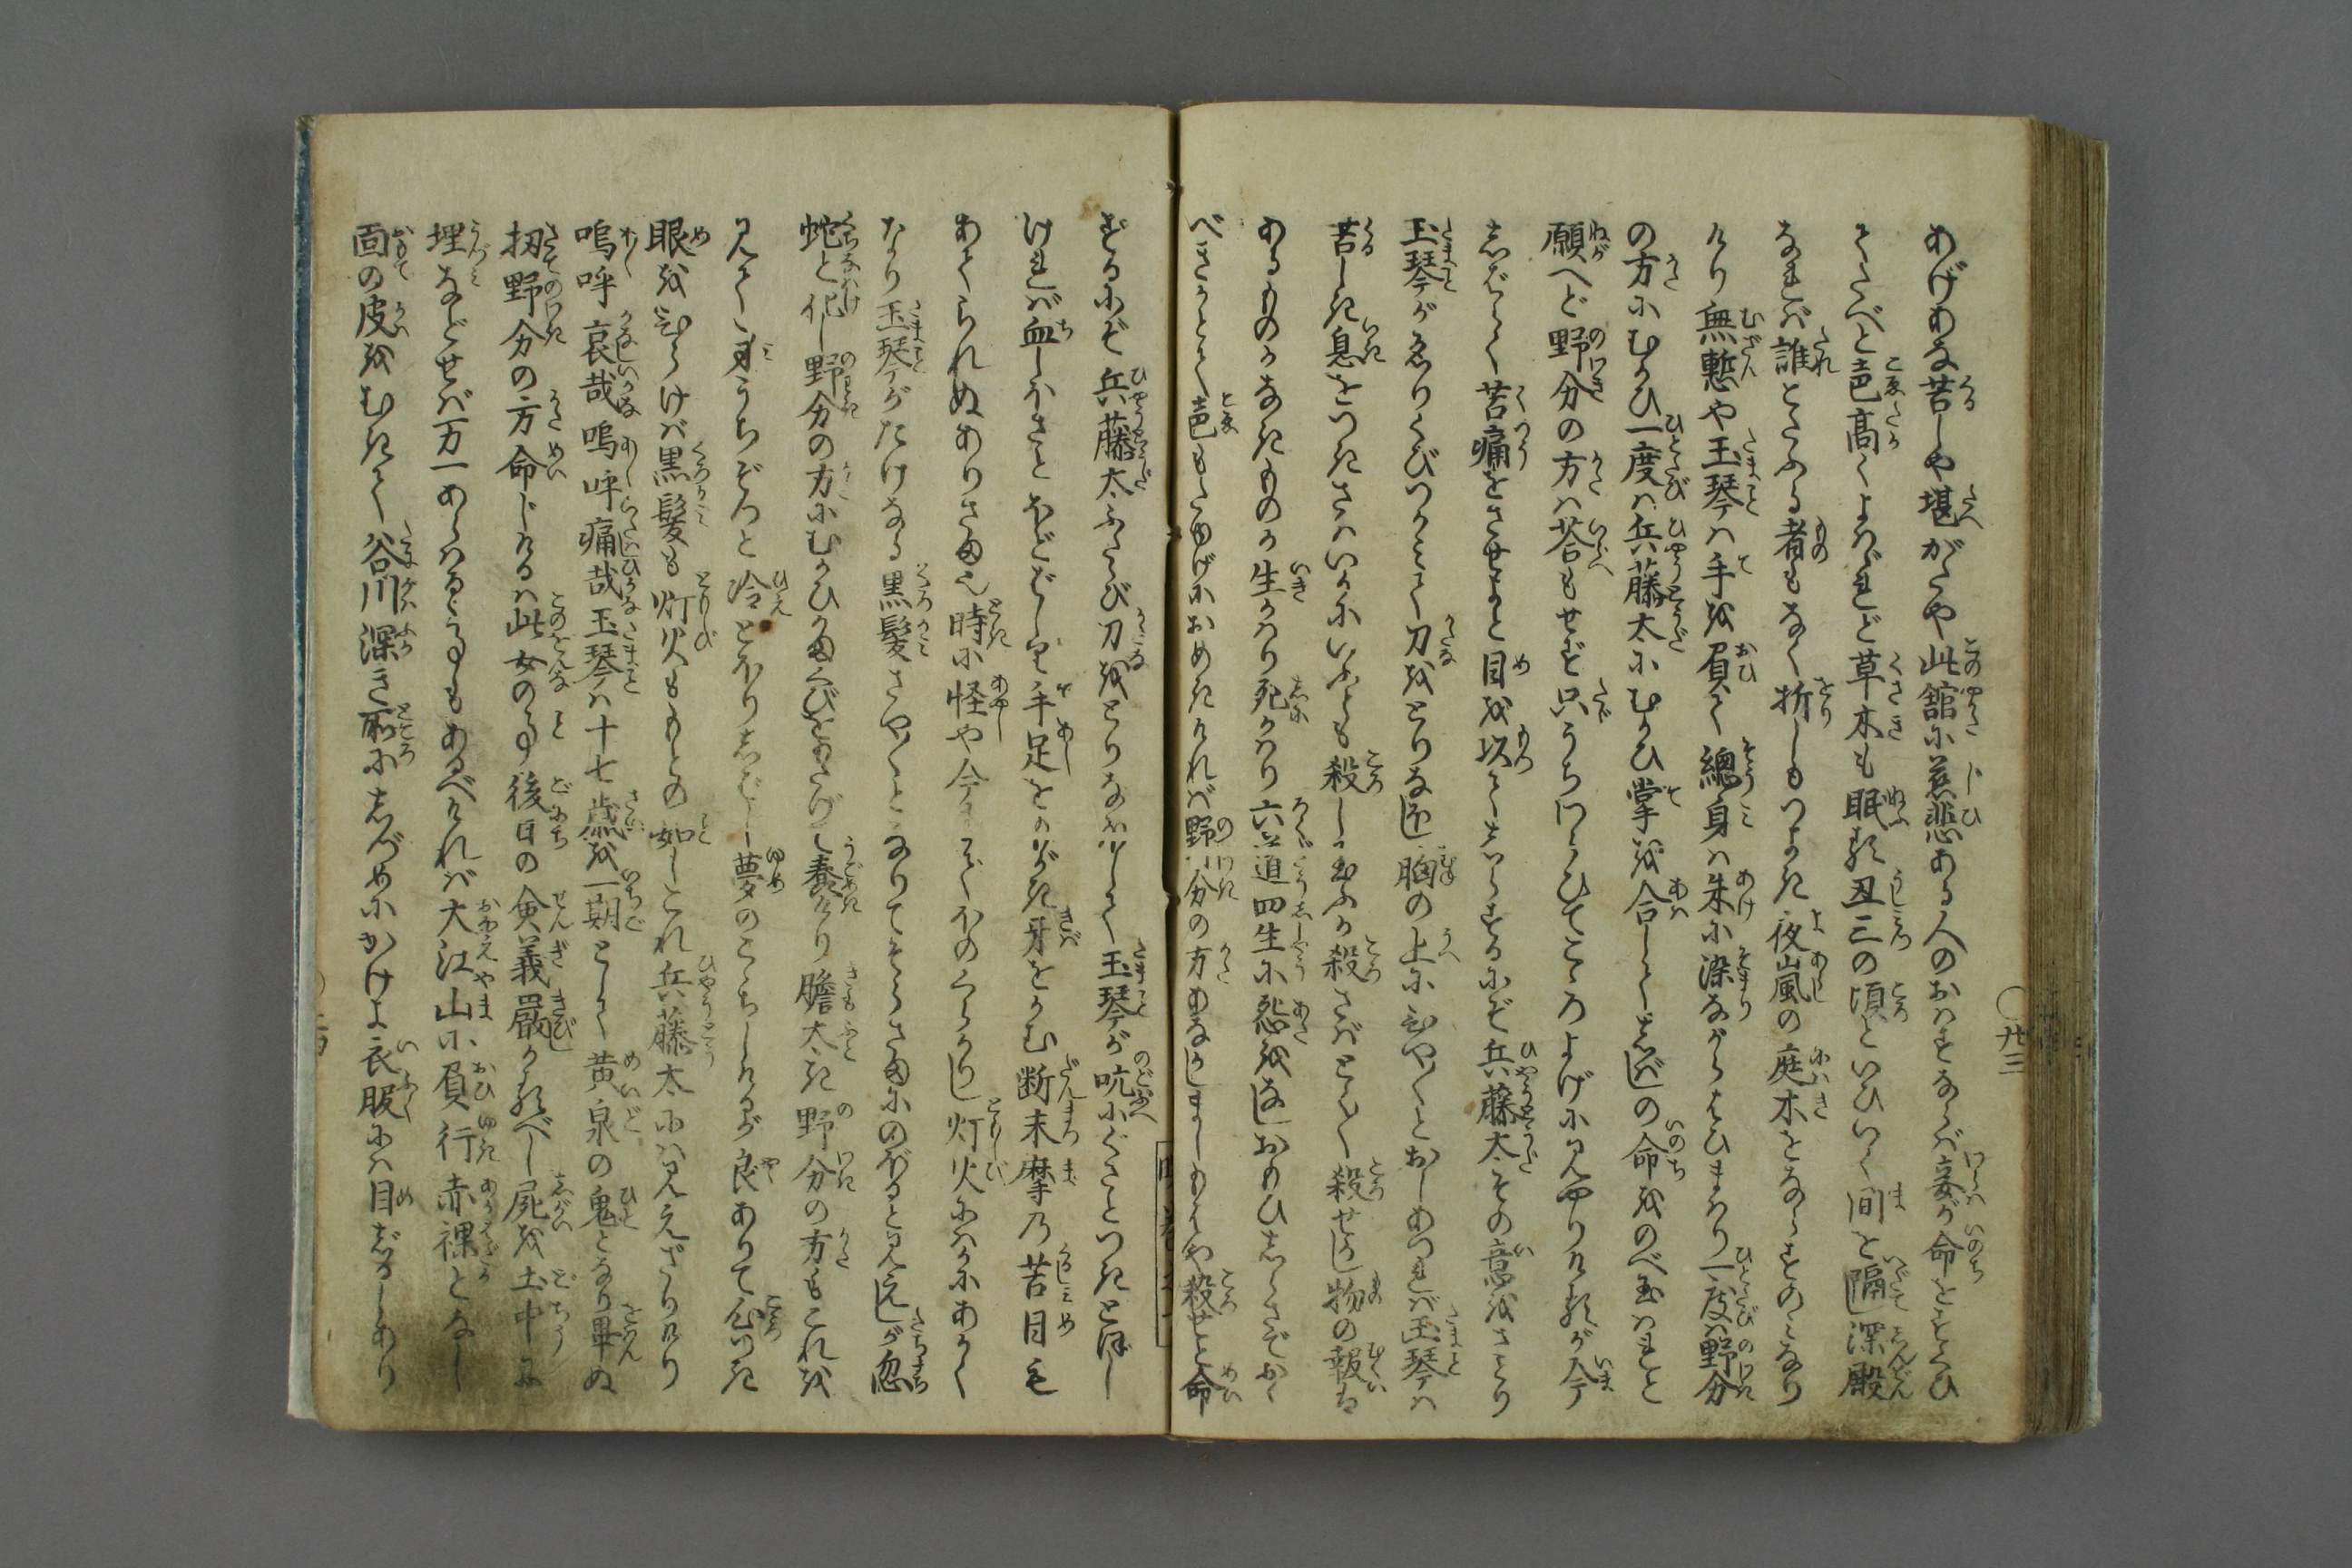 あげあな苦しや堪がたや此舘に慈悲ある人のおはさずや妾が命をすくひ
てたべと声高くよばれど草木も眠る丑三の頃といひいく間を隔し深殿
なれば誰とこたふる者もなく折しもつよき夜嵐の庭木をならすのみなり
けり無慙や玉琴は手を負て總身は朱に染ながらはひまはり一度は野分
の方にむかひ一度は兵藤太にむかひ掌を合してしばしの命をのべ玉はれと
願へど野分の方は荅もせず只うちわらひてこゝろよげに見やりけるが今
しばらく苦痛をさせよと目を以てしらするにぞ兵藤太その意をさとり
玉琴がゑりくびつかみて刀をとりなほし胸の上にひや〳〵とおしあつれば玉琴は
苦しき息をつきさはいかにいふとも殺し玉ふか殺さばとく〳〵殺せかし物の報は
あるものかなきものか生かはり死かはり六道四生に怨をなしおもひしらさでおく
べきかとて声もたゆげにおめきければ野分の方あなかしましもはや殺せと命
ずるにぞ兵藤太ふたゝび刀をとりなほして玉琴が吭にぐさとつきとほし
ければ血しほさとほどばしり手足をもがき牙をかむ断末摩乃苦目も
あてられぬありさま也時に怪や今までほのくらかりし灯火にはかにあかく
なり玉琴がたけなる黒髪さや〳〵となりてさかさまにのぼると見えしが忽
蛇と化し野分の方にむかひかまくびをもたげて蠢けり膽太き野分の方もこれを
見て身うちぞつと冷とほりしばし夢のこゝちしけるが良ありて心つき
眼をひらけば黒髪も灯火ももとの如しこれ兵藤太には見えざりけり
嗚呼哀哉嗚呼痛哉玉琴は十七歳を一期として黄泉の鬼となり畢ぬ
扨野分の方命じけるは此女の事後日の僉義嚴かるべし屍を土中に
埋などせば万一あらはるゝ事もあるべければ大江山に負行赤裸となし
面の皮をむきて谷川深き所にしづめにかけよ衣服には目じるしあり
〇廿三